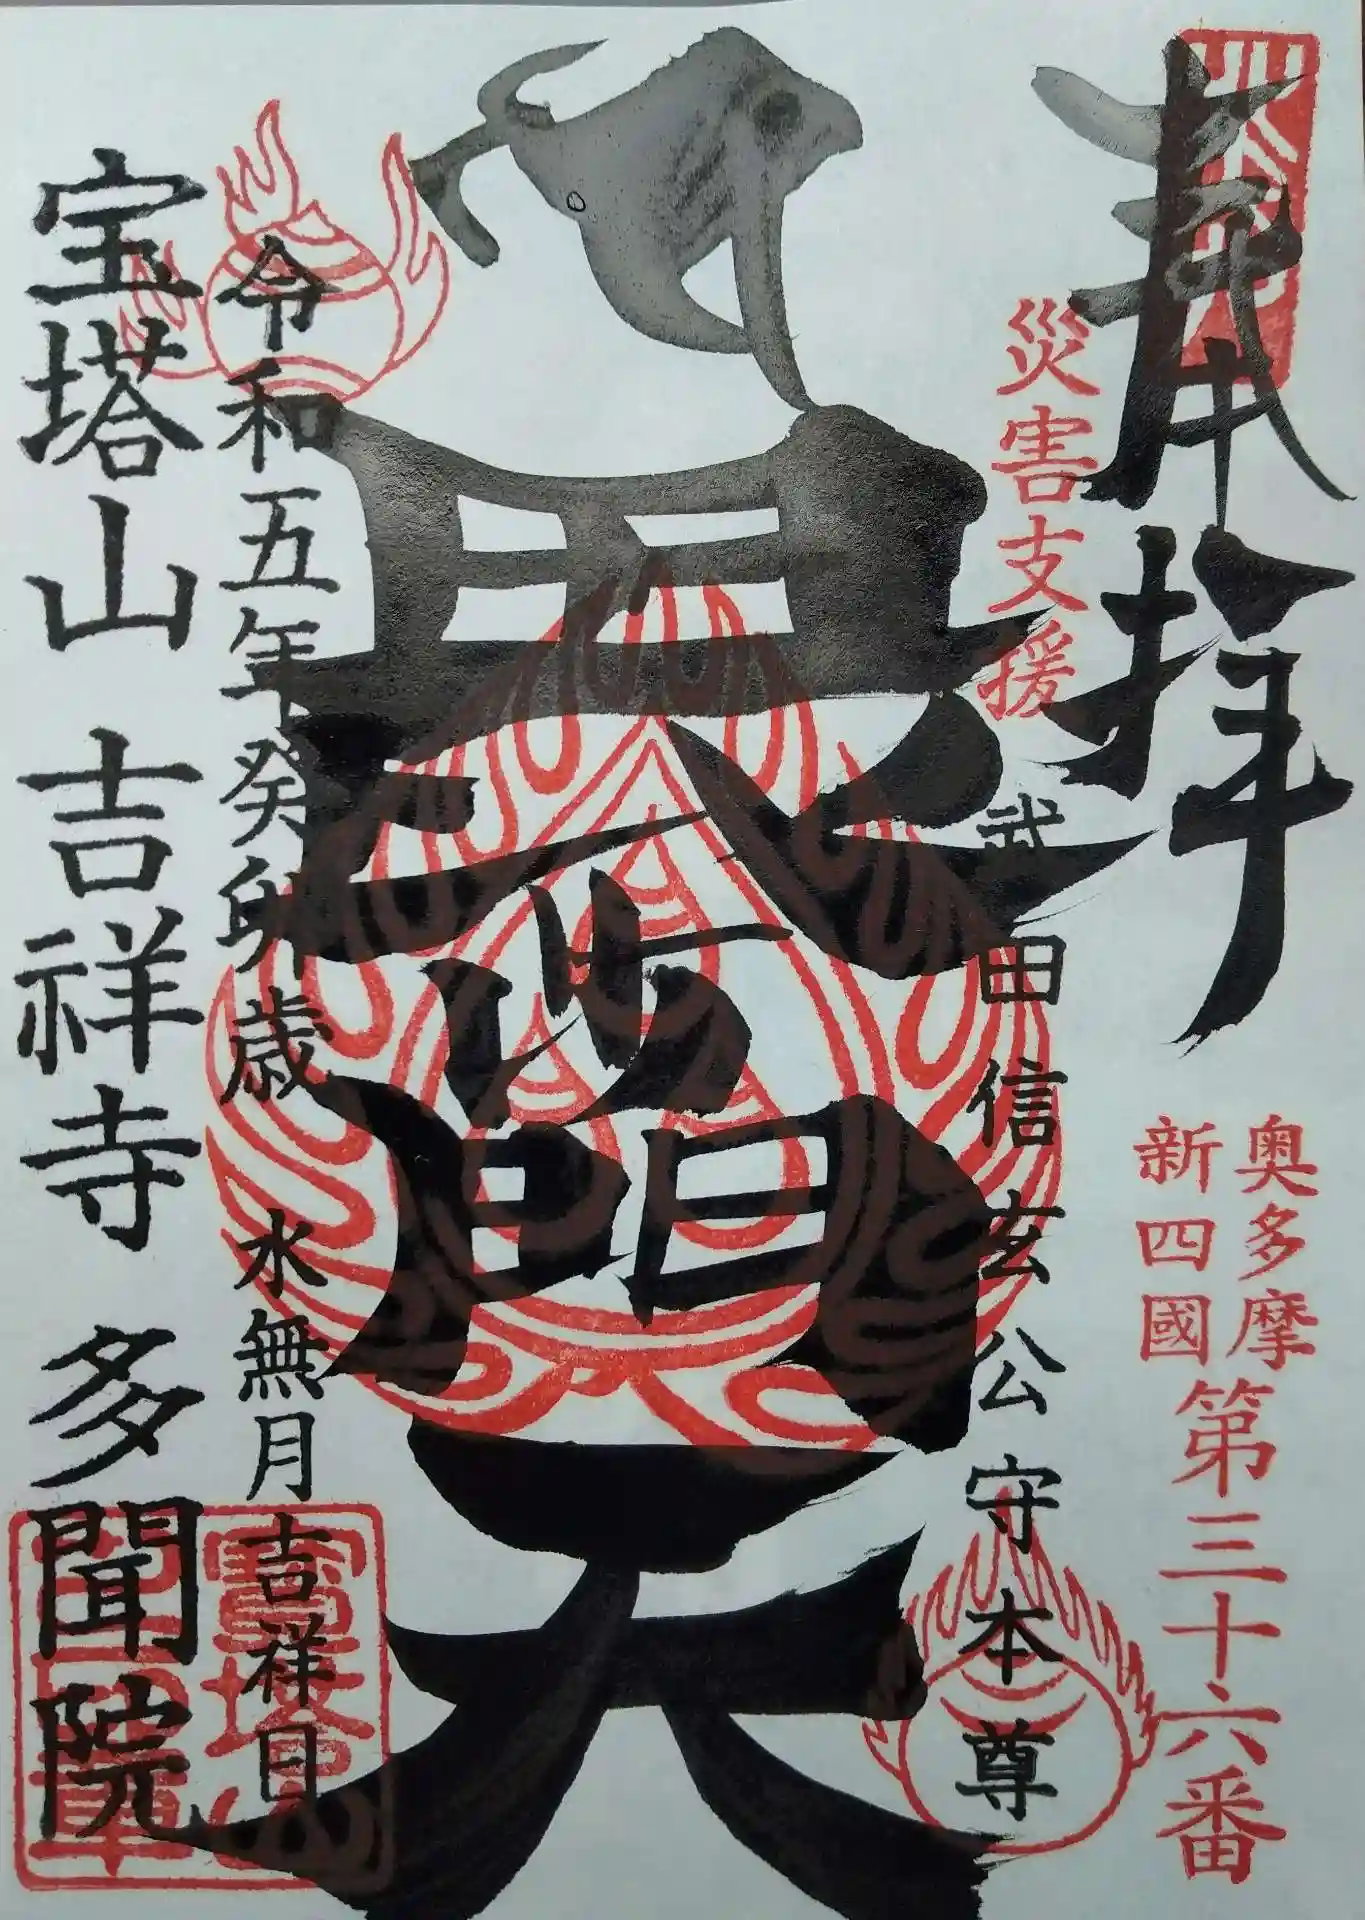 奉拝
災害支援
奥多摩
新四國
第三十六番
武田信玄公守本尊
毘沙門天
令和五年癸卯歳 水無月吉祥日
宝塔山 吉祥寺 多聞院